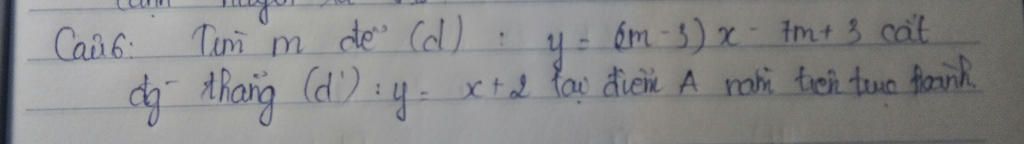 Câu 6: Tìm m để (d) : y = (m - 3) x - 7m + 3 cắt
đg thẳng (d') : y = x + 2 tại điểm A nằm trên trục hoành.